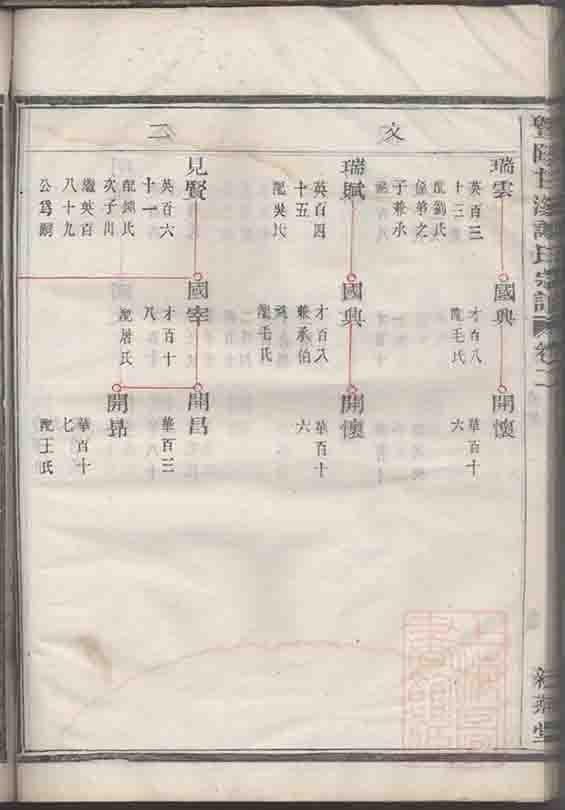 文
二
瑞雲
英百三
十三
配劉氏
侄弟之
子兼承
國興
才百八
配毛氏
開懷
華百十
六
瑞賦
英百四
十五
配吳氏
國興
才百八
兼承伯
配毛氏
開懷
華百十
六
見賢
英百六
十一
次子出
繼英百
八十九
公為嗣
國宰
才百十
八
配屠氏
開昌
華百三
開昂
華百十
七
配王氏
宗譜
卷二